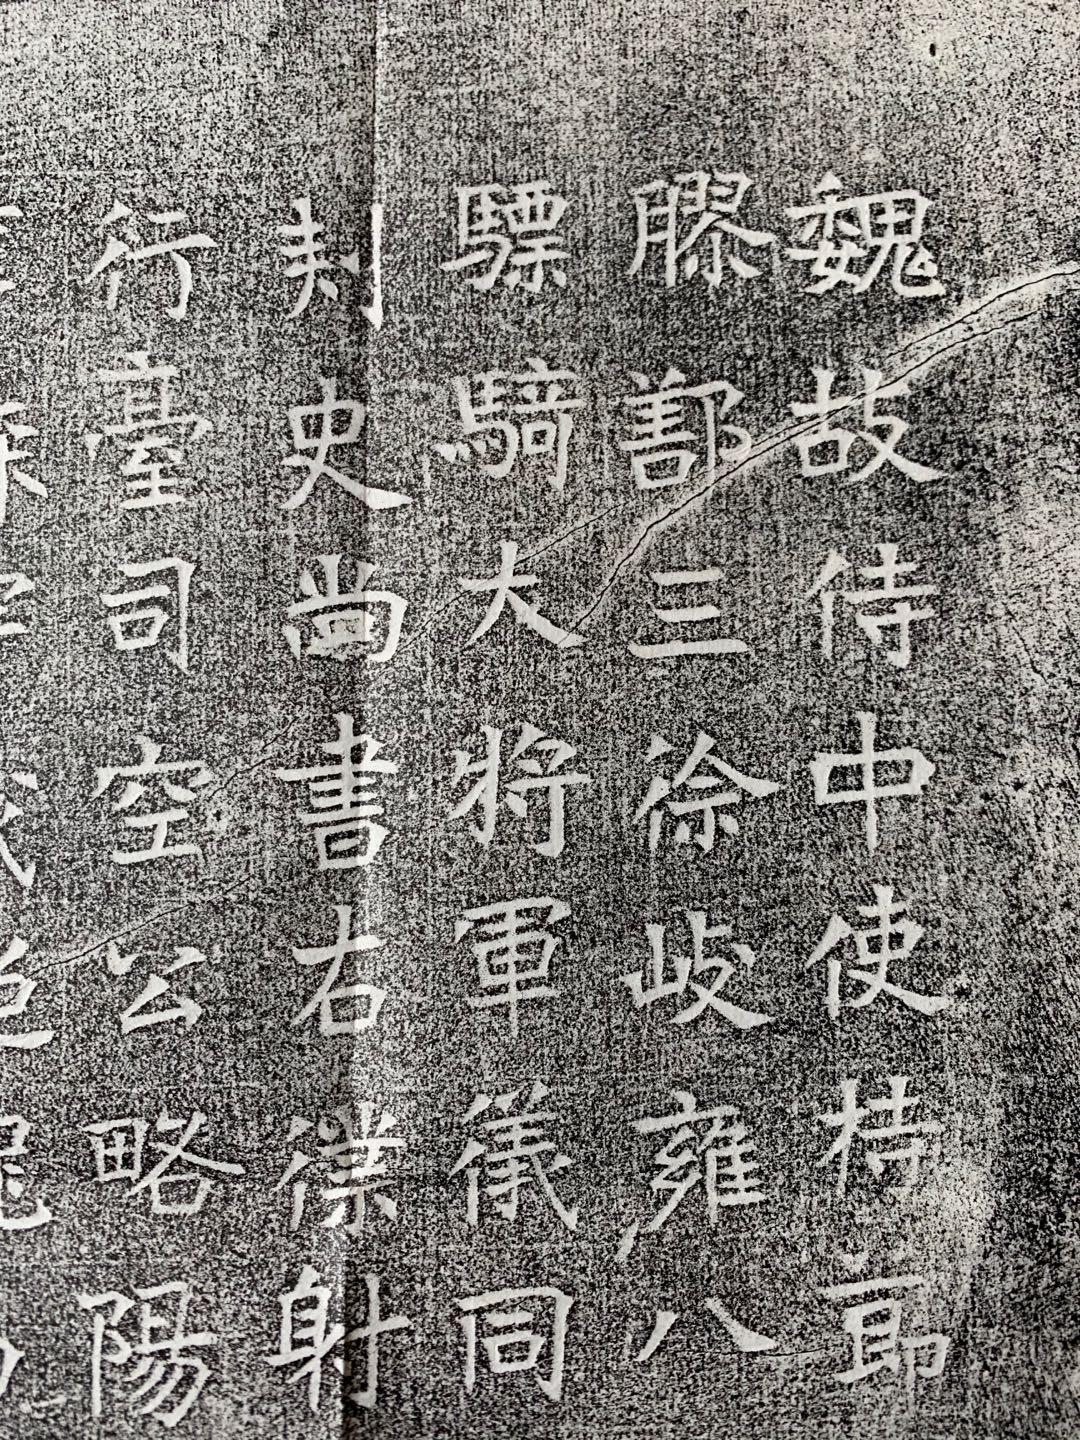 魏故侍中使持節
膠鄯三徐岐雍八
驃騎大將軍儀同
刺史尚書右僕射
行臺司空公略陽